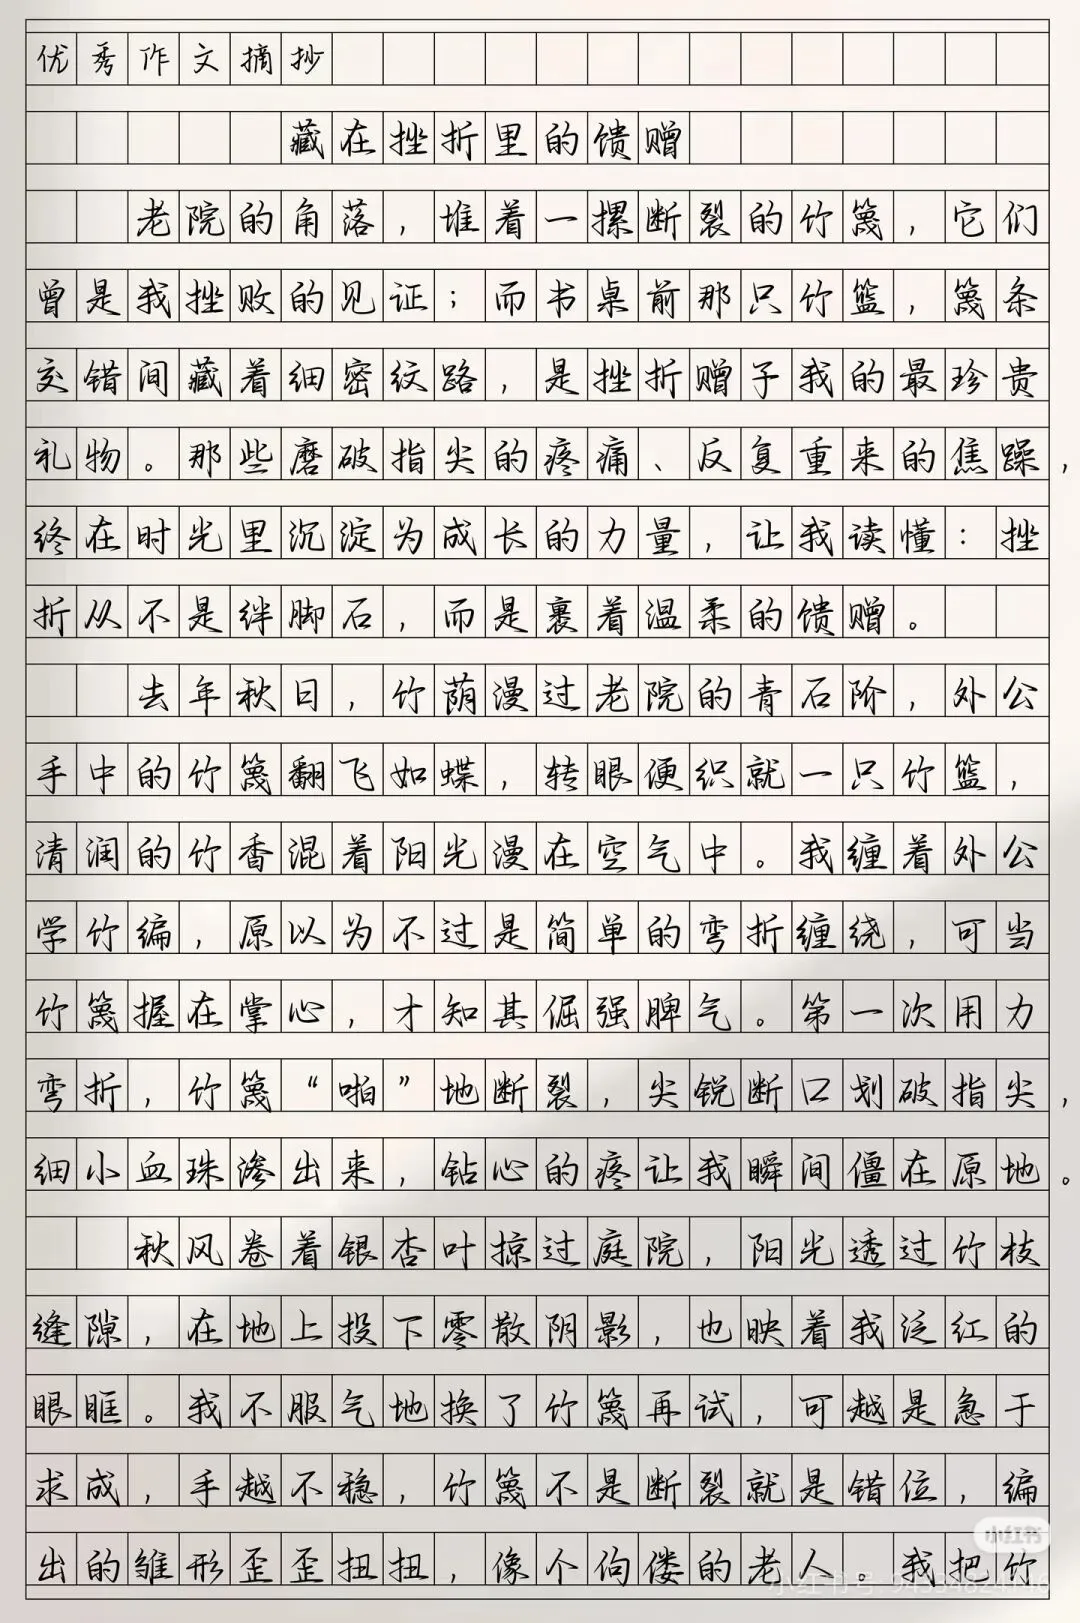 优秀作文摘抄
藏在挫折里的馈赠
老院的角落，堆着一摞断裂的竹篾，它们
曾是我挫败的见证；而书桌前那只竹篮，篾条
交错间藏着细密纹路，是挫折赠予我的最珍贵
礼物。那些磨破指尖的疼痛、反复重来的焦躁，
终在时光里沉淀为成长的力量，让我读懂：挫
折从不是绊脚石，而是裹着温柔的馈赠。
去年秋日，竹荫漫过老院的青石阶，外公
手中的竹篾翻飞如蝶，转眼便织就一只竹篮，
清润的竹香混着阳光漫在空气中。我缠着外公
学竹编，原以为不过是简单的弯折缠绕，可当
竹篾握在掌心，才知其倔强脾气。第一次用力
弯折，竹篾“啪”地断裂，尖锐断口划破指尖，
细小血珠渗出来，钻心的疼让我瞬间僵在原地。
秋风卷着银杏叶掠过庭院，阳光透过竹枝
缝隙，在地上投下零散阴影，也映着我泛红的
眼眶。我不服气地换了竹篾再试，可越是急于
求成，手越不稳，竹篾不是断裂就是错位，编
出的雏形歪歪扭扭，像个佝偻的老人。我把竹
小红书